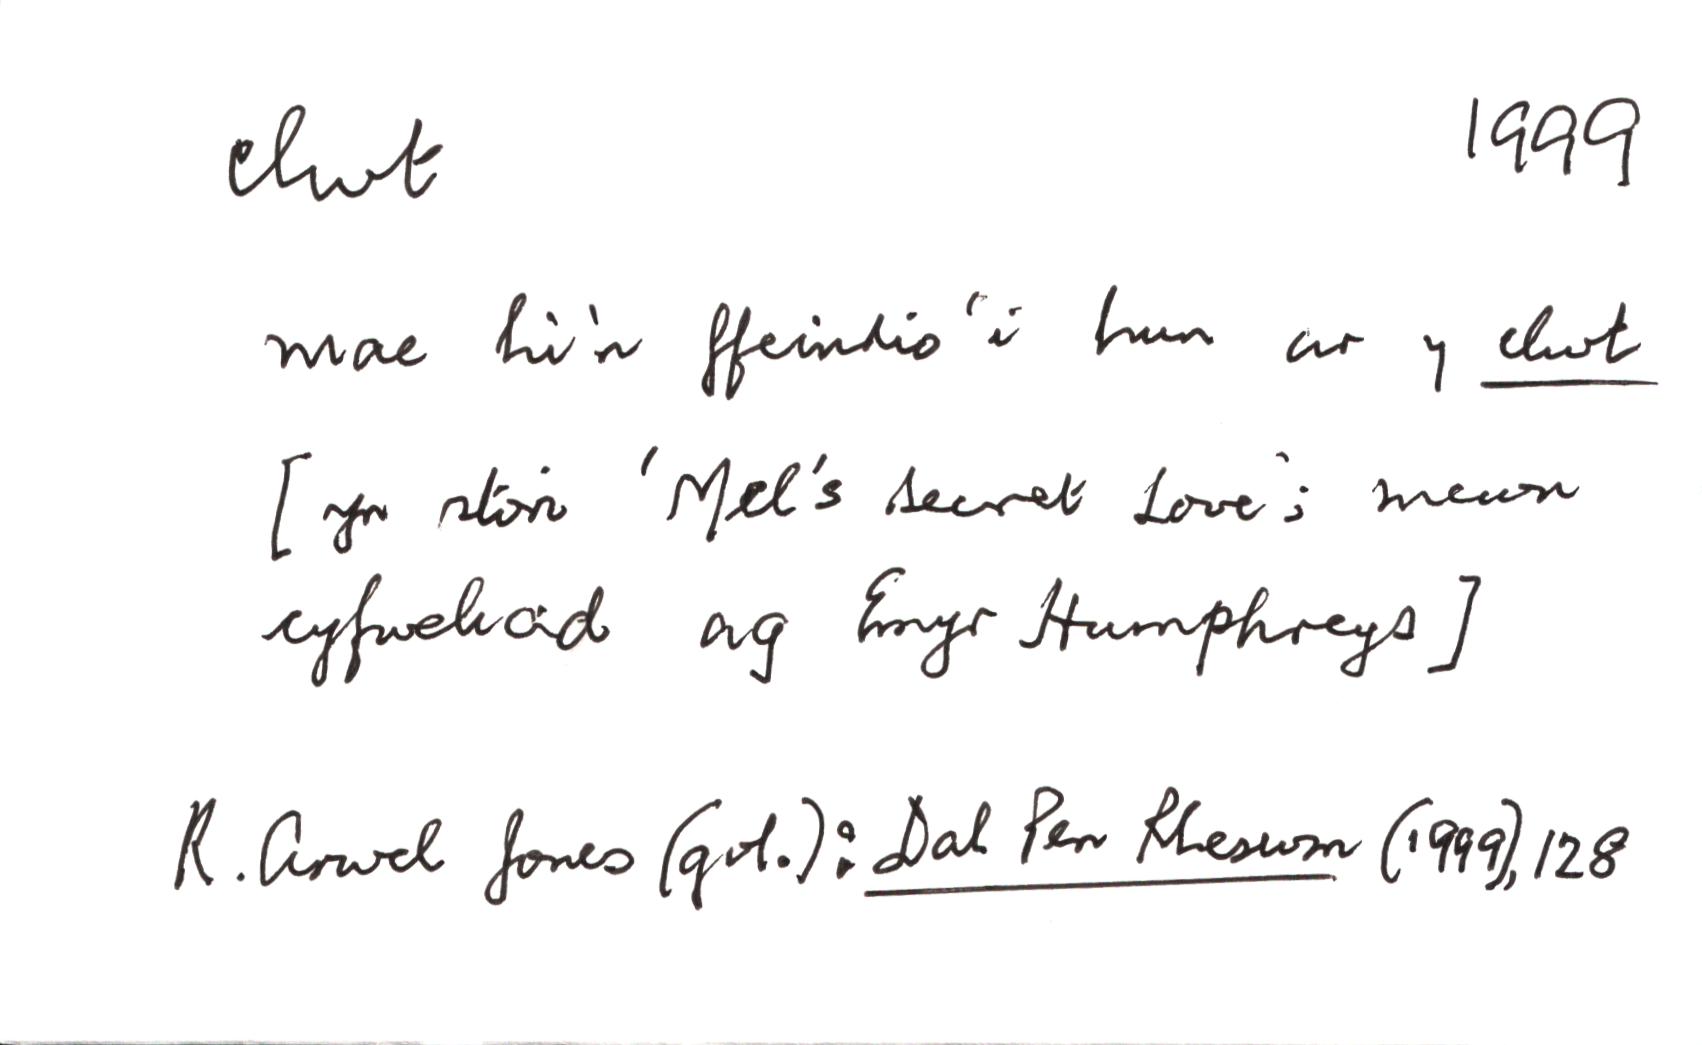 clwt 1999
mae hi'n ffeindio 'i hun ar y clwt
[yn stori 'Mel's Secret Love'; mewn
cyfweliad ag Emyr Humphreys]
R. Arwel Jones (gol.): Dal Pen Rheswm (1999), 128